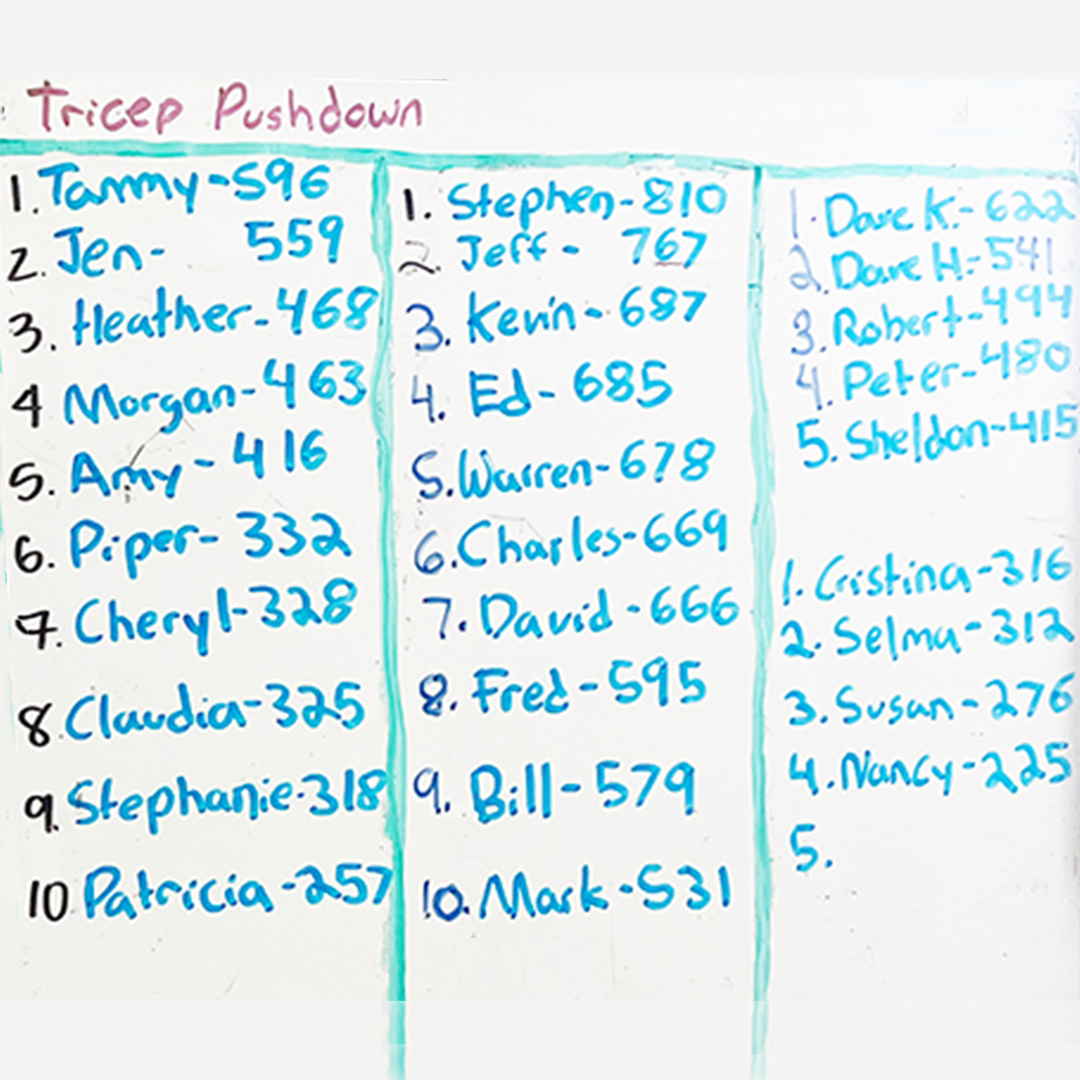 Tricep Pushdown
1. Tammy-596
2. Jen- 559
3. Heather-468
4 Morgan-463
5. Amy-416
6. Piper-332
7. Cheryl-328
8. Claudia-325
9. Stephanie-318
10 Patricia-257
1. Stephen-810
2. Jeff- 767
3. Kevin-687
4. Ed-685
5. Warren-678
6. Charles-669
7. David-666
8. Fred-595
9. Bill-579
10. Mark-531
1. Dave K.-622
2. Dave H.-541
3. Robert-494
4. Peter-480
5. Sheldon-415
1. Cristina-316
2. Selma-312
3. Susan-276
4. Nancy-225
5.